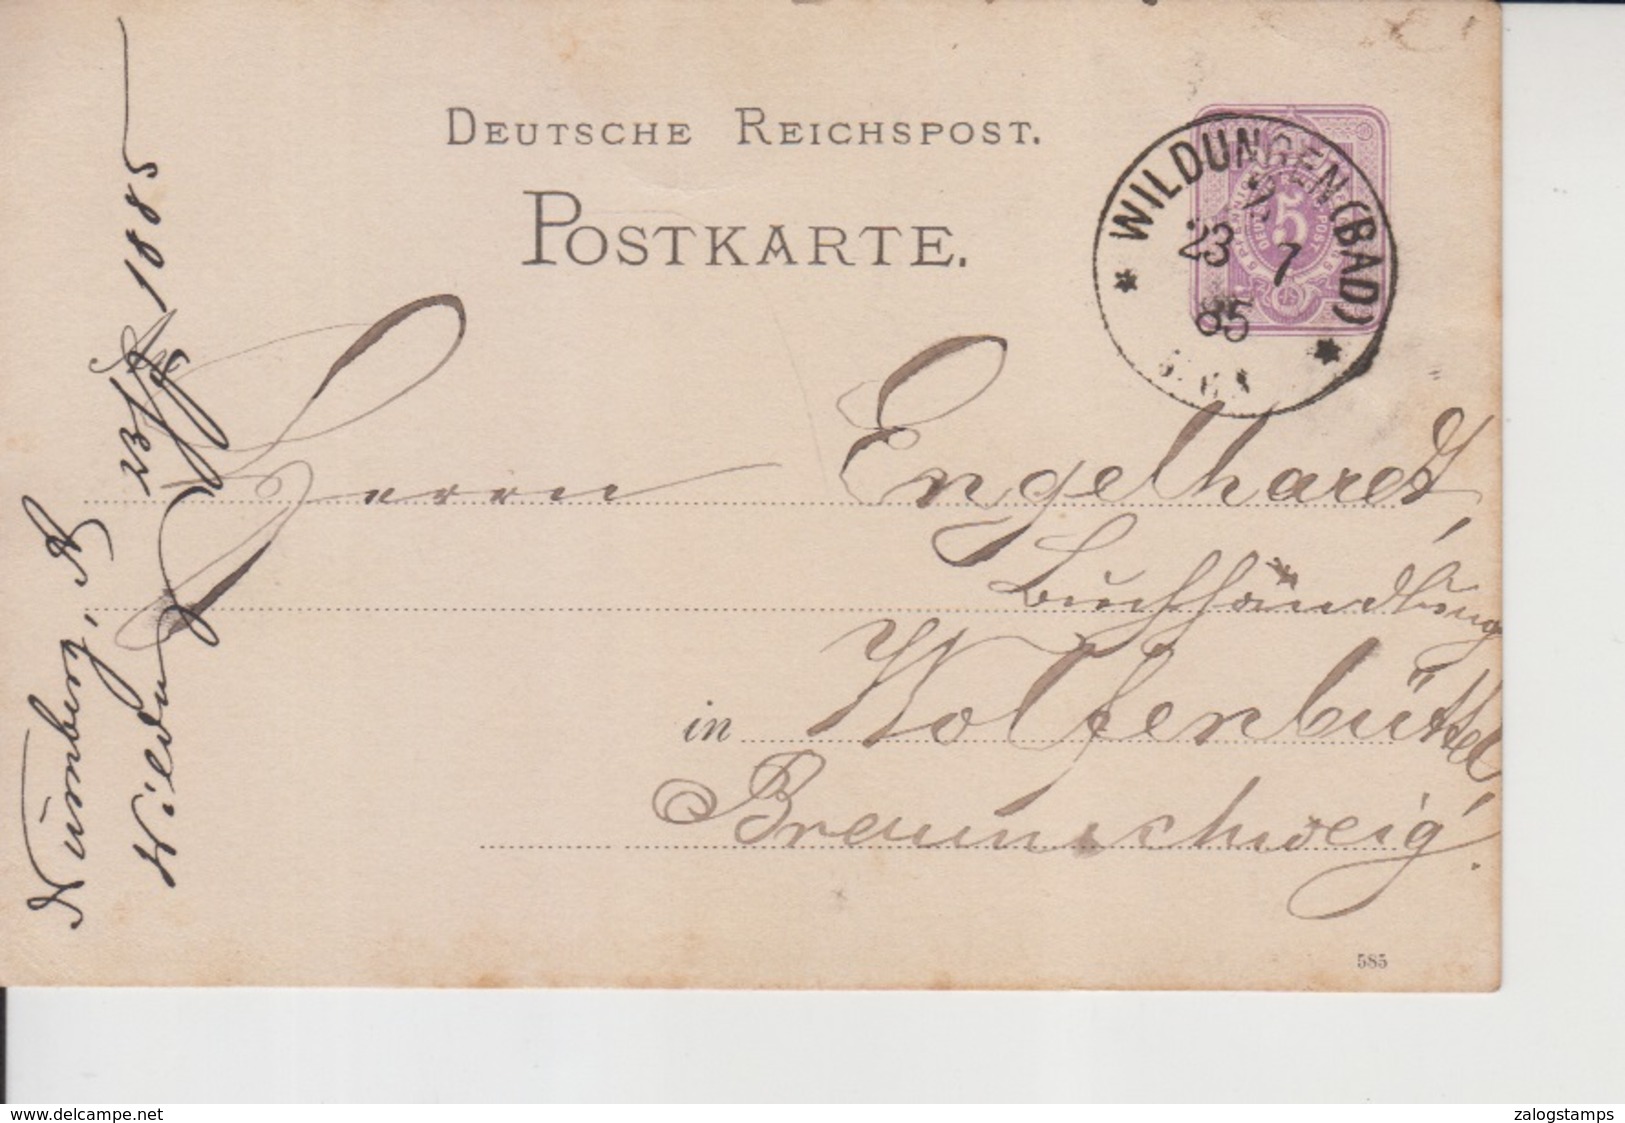 DEUTSCHE REICHSPOST.
POSTKARTE.
5
WILDUNGEN (BAD)
23 7
85
An
Herrn Engelhardt,
Buchhändlung
in Wolfenbüttel,
Braunschweig.
585
Nürnberg, A
Wildung 23/7 1885
www.delcampe.net
zalogstamps